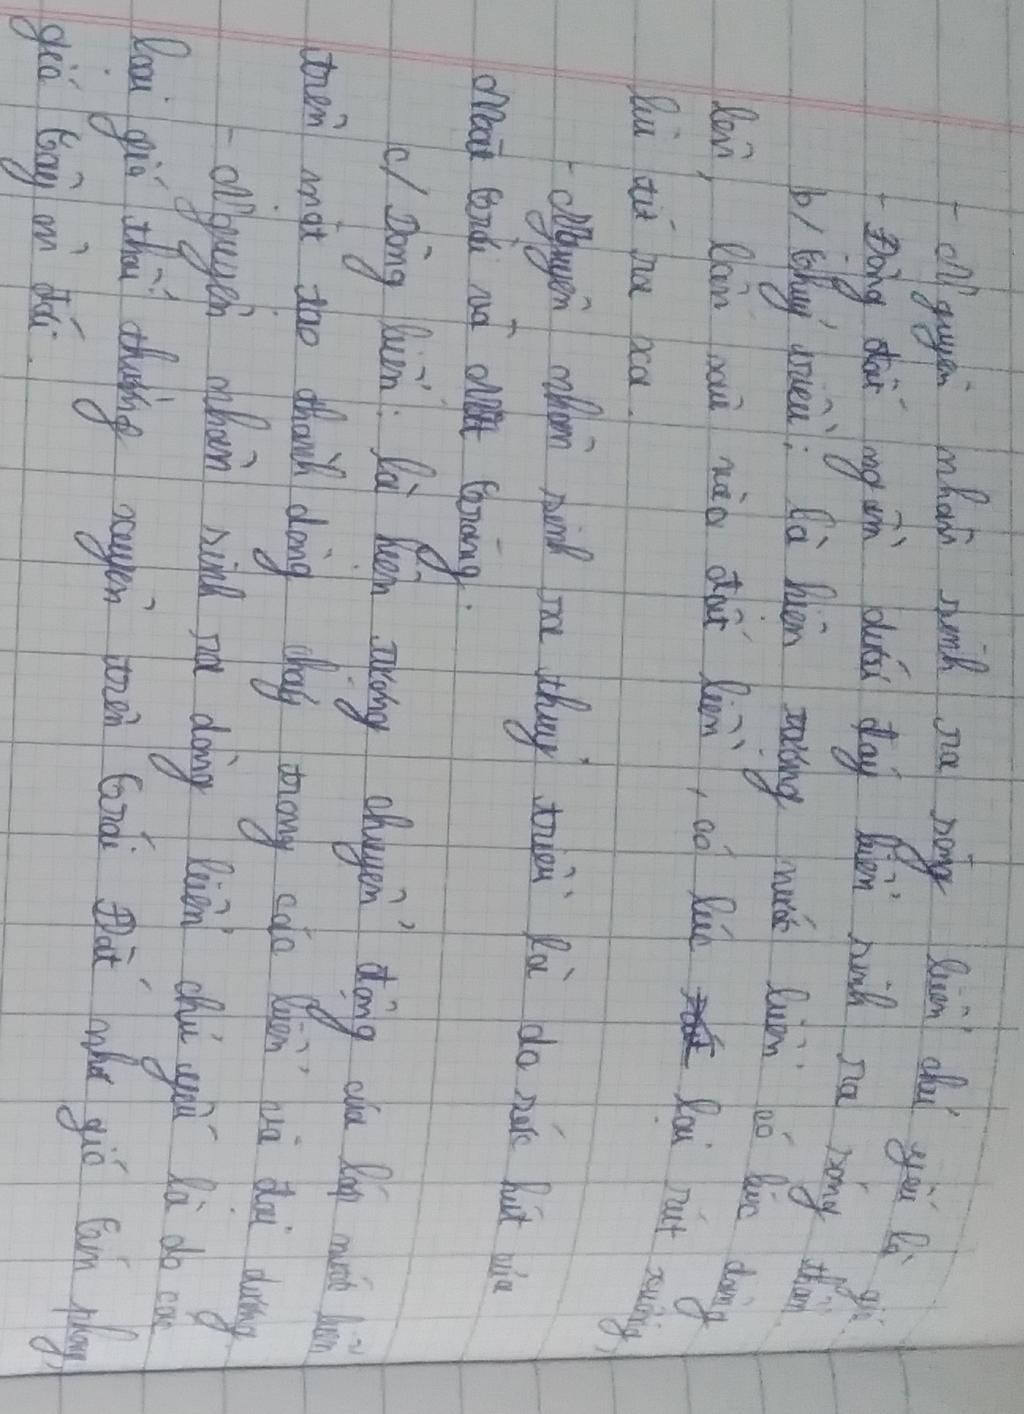 - Nguyên nhân sinh ra sóng biển chủ yếu là gió.
- Động đất ngầm dưới đáy biển sinh ra sóng thần
b/ Thuỷ triều: là hiện tượng nước biển có lúc dâng
lên, lấn sâu vào đất liền, có lúc lại rút xuống,
lùi tít ra xa.
- Nguyên nhân sinh ra thuỷ triều là do sức hút của
Mặt Trời và Mặt Trăng.
c/ Dòng biển: là hiện tượng chuyển động của lớp nước biển
trên mặt tạo thành dòng chảy trong các biển và đại dương.
- Nguyên nhân sinh ra dòng biển chủ yếu là do các
loại gió thổi thường xuyên trên Trái Đất như gió Tín phong,
gió Tây ôn đới.